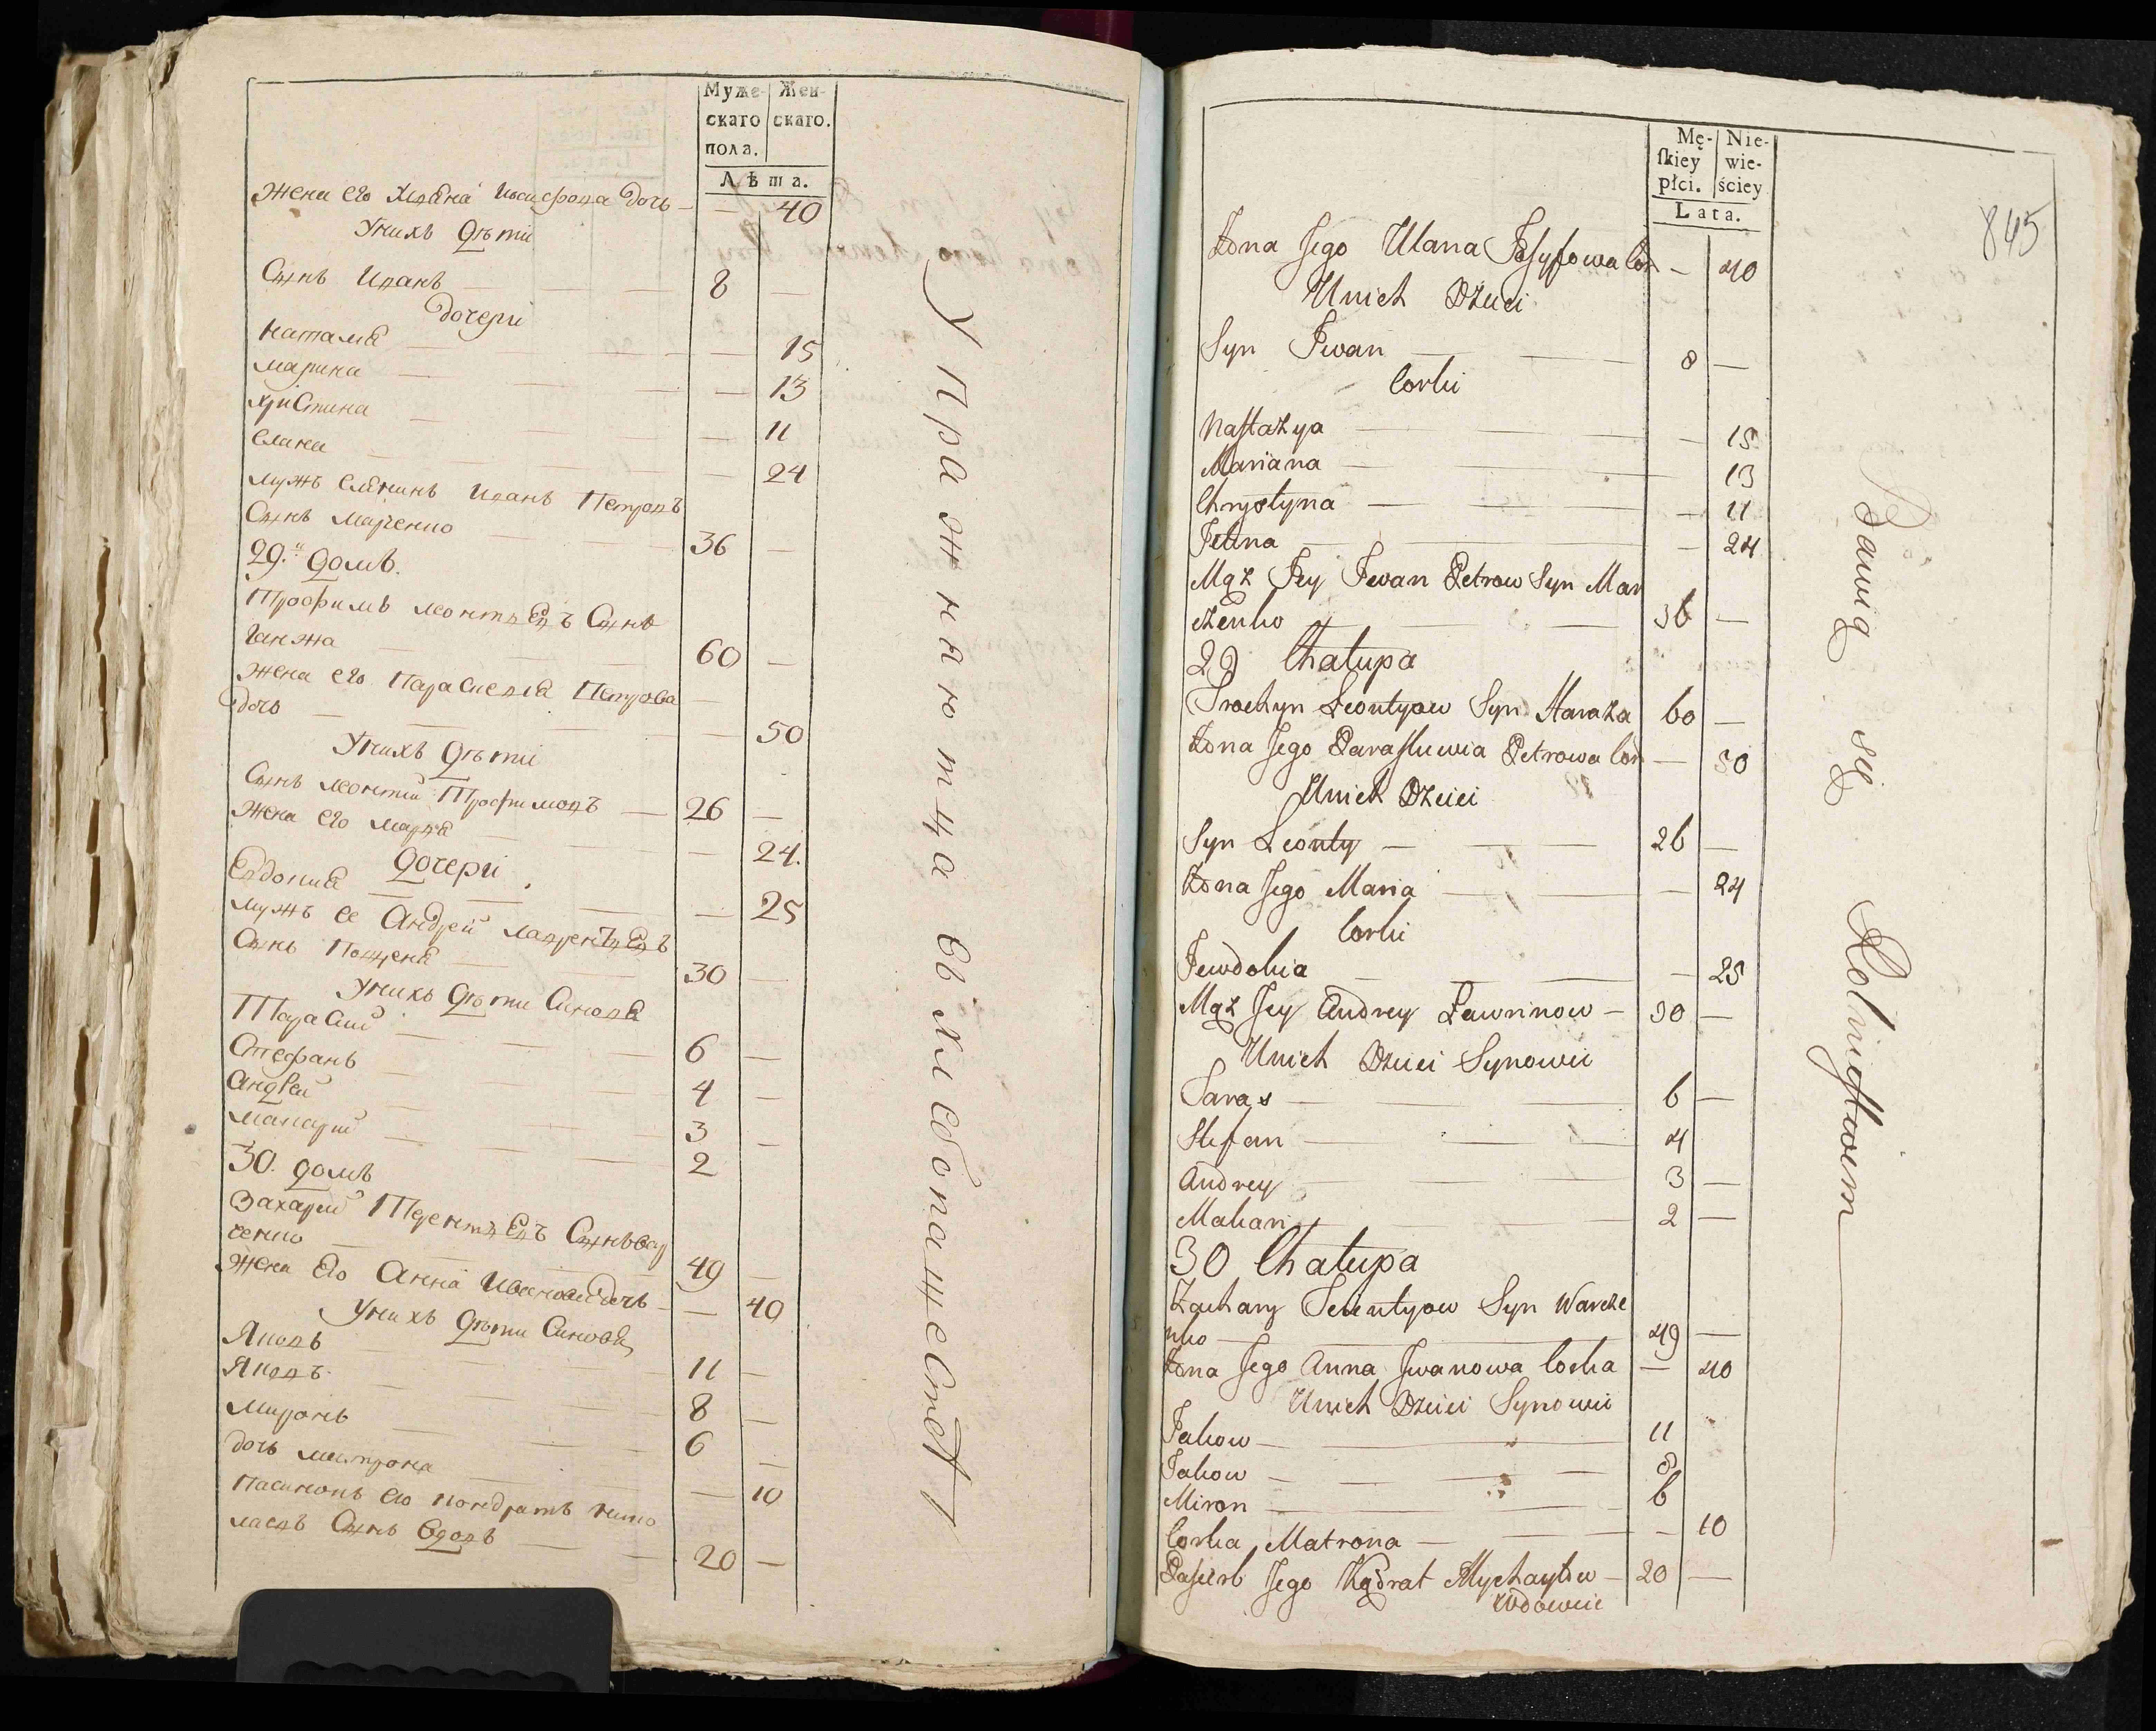 Муже- Жен-
скаго скаго.
пола.
Лѣта.
Жена его Уляна Иосифова дочь — — 40
У нихъ дѣти
Сынъ Иванъ — — — 8 —
дочери
Наталиа — — — — 15
Марина — — — 13
Христина — — — 11
Елена — — — 24
мужъ Еленинъ Иванъ Петровъ
Сынъ Марченко — — 36 —
29.й домъ.
Трофимъ Леонтьевъ Сынъ
Ганжа — — — 60 —
Жена его Параскевиа Петрова —
дочь — — — — 50
У нихъ дѣти
Сынъ Леонтий Трофимовъ — 26 —
Жена его Мариа — — — 24.
дочери
Евдокиа — — — — 25
мужъ ее Андрей Лаврентьевъ
Сынъ — — 30 —
У нихъ дѣти Синова
Тарасий — — — 6 —
Стефанъ — — — 4 —
Андрей — — — 3 —
Макарий — — — 2
30. домъ
Захарий Терентьевъ Сынъ Вар
ченко — — — 49 —
Жена Его Анна Иванова дочь — — 40
У нихъ дѣти Синова
Яковъ — — — 11 —
Яковъ — — — 8 —
Миронъ — — — 6 —
дочь Матрона — — — 10
Пасинокъ Его Кондратъ Нико
лаевъ Сынъ Вдовъ — — 20 —
Упражняютца въ хлебопашестве
845
Mę- Nie-
ſkiey wie-
płci. ściey
Lata.
Żona Jego Ulana Josyfowa Cor — 40
U nich Dzieci
Syn Iwan — — 8 —
Corki
Nastazya — — — 15
Mariana — — 13
Chrystyna — — — 11
Jelena — — 24
Mąż Jey Iwan Petrow Syn Mar
czenko — — 36 —
29 Chałupa
Trochym Leontyow Syn Haraża 60 —
Żona Jego Paraskiewia Petrowa Cor — 50
U nich Dzieci
Syn Leonty — — — 26 —
Żona Jego Maria — — 24
Corki
Jewdokia — — — 25
Mąż Jey Andrey Ławrinow — 30 —
U nich Dzieci Synowie
Taras — — — 6 —
Stefan — — — 4
Andrey — — — 3 —
Makari — — — 2 —
30 Chałupa
Zachary Terentyow Syn Warcze
nko — — 49 —
Żona Jego Anna Iwanowa Corka — 40
U nich Dzieci Synowie
Jakow — — 11
Jakow — — — 8
Miron — — 6
Corka Matrona — — — 10
Pasierb Jego Kądrat Mychayłow — 20 —
Wdowiec
Bawią się Rolnictwem